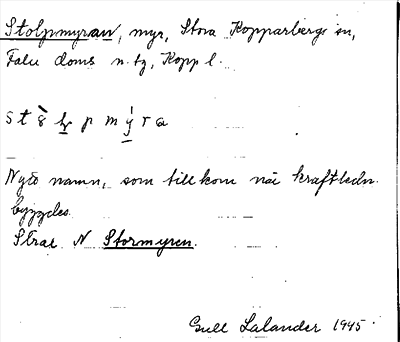 Stolpmyran, myr, Stora Kopparbergs sn,
Falu doms. n. tg, Kopp l.
st p m y r a
Nytt namn, som tillkom när kraftledn.
byggdes.
Strax N Stormyren.
Lalander 1945